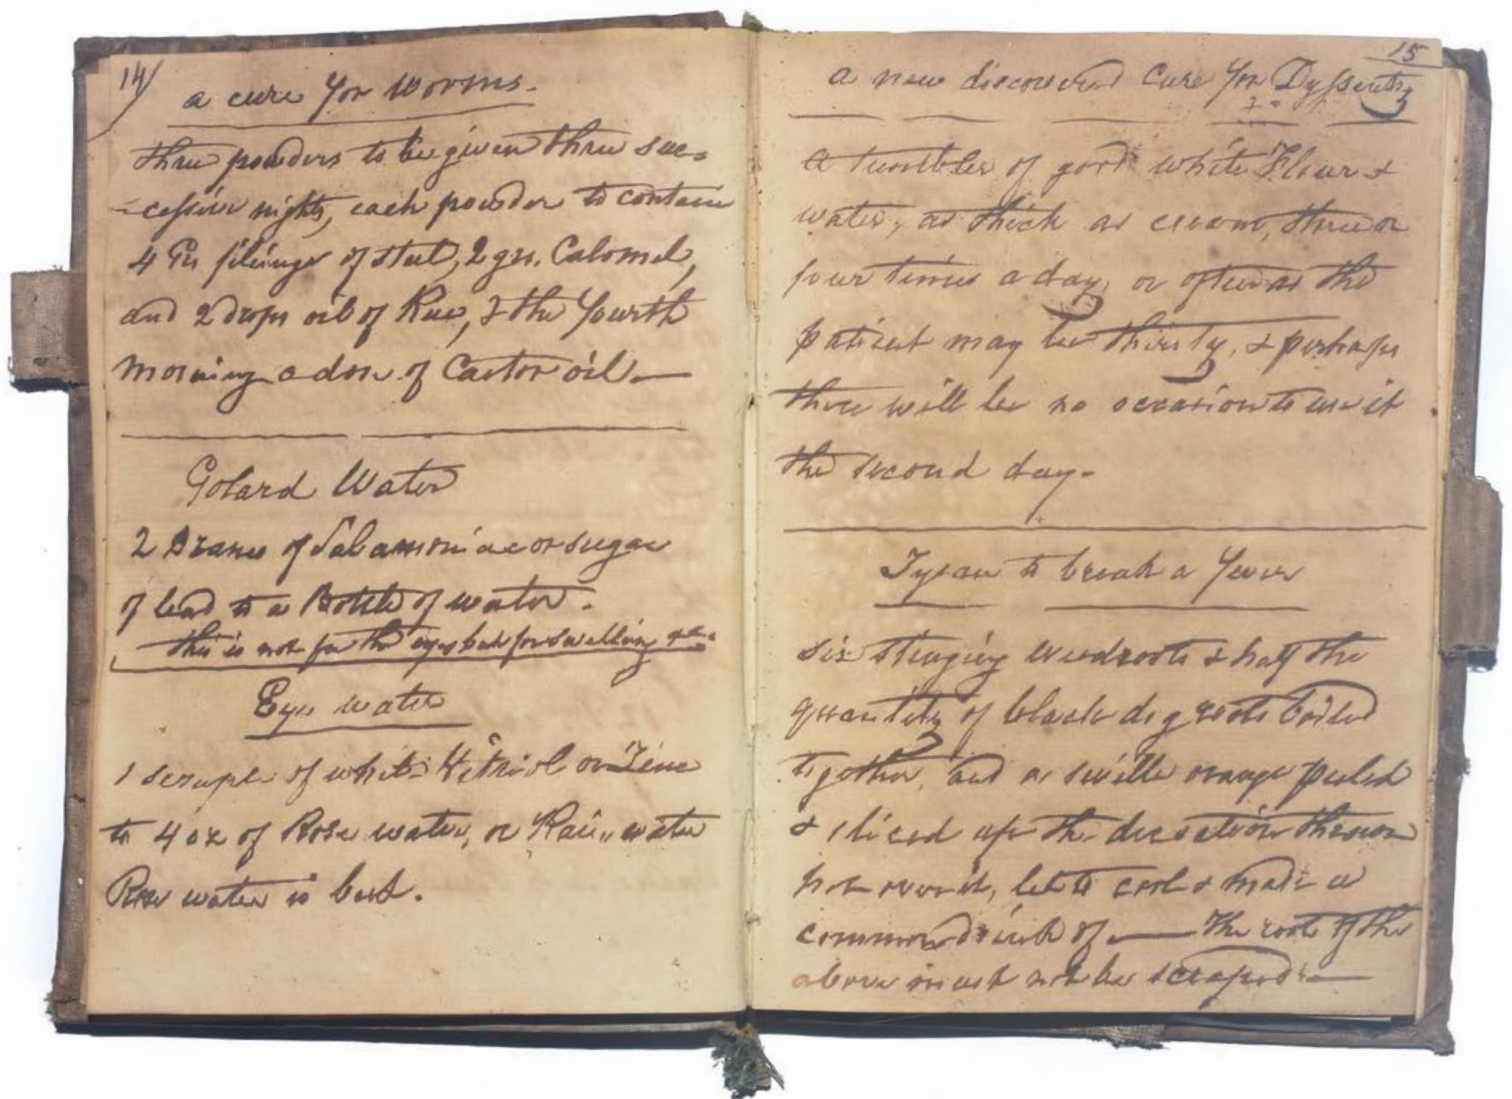 14
a cure for Worms.
three powders to be given three suc=
-cessive nights, each powder to contain
4 Grs filings of steel, 2 grs. Calomel,
and 2 drops oil of Rue, & the fourth
morning a dose of Castor oil —
Golard Water
2 Drams of Salamoniac or sugar
of lead to a Bottle of water.
this is not for the eyes but for swelling &c.
Eye water
1 scruple of white Vitriol or Zinc
to 4 oz of Rose water, or Rain water
Rose water is best.
15
a new discovered Cure for Dyssentry
a tumbler of good white Flour &
water, as thick as cream, three or
four times a day, or often as the
patient may be thirsty, & perhaps
there will be no occasion to use it
the second day.
to break a fever
six stinging weedroots & half the
quantity of black dog roots boiled
together, and a seville orange peeled
& sliced up the decoction thrown
hot over it, let it cool & make a
common drink of — The roots of the
above must not be scraped —